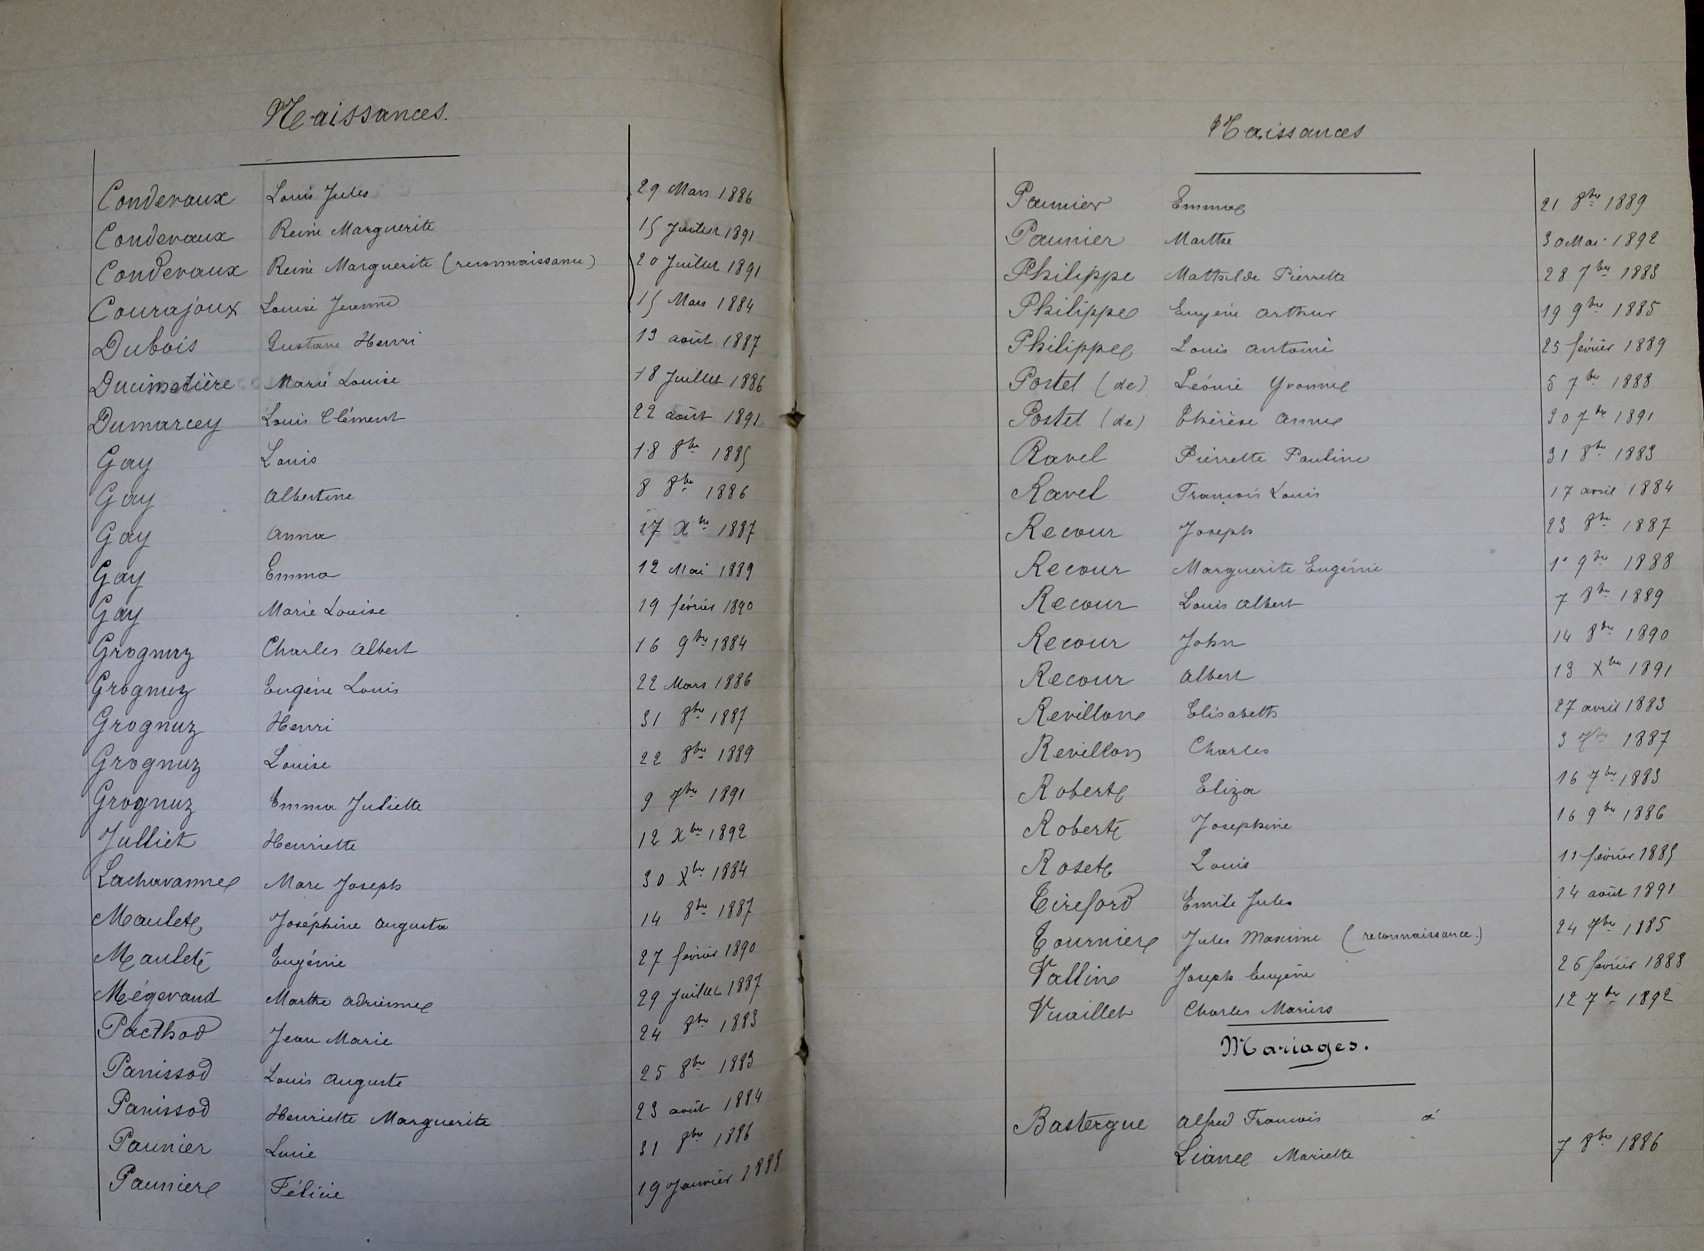 Naissances.
Condevaux Louis Jules 29 Mars 1886
Condevaux Reine Marguerite 15 Juillet 1891
Condevaux Reine Marguerite (reconnaissance) 20 Juillet 1891
Courajoux Louise Jeanne 15 Mars 1884
Dubois Gustave Henri 13 août 1887
Ducimetière Marie Louise 18 Juillet 1886
Dumarcey Louis Clément 22 août 1891
Gay Louis 18 8bre 1885
Gay Albertine 8 8bre 1886
Gay Anna 17 Xbre 1887
Gay Emma 12 Mai 1889
Gay Marie Louise 19 février 1890
Grognuz Charles Albert 16 9bre 1884
Grognuz Eugène Louis 22 Mars 1886
Grognuz Henri 31 8bre 1887
Grognuz Louise 22 8bre 1889
Grognuz Emma Juliette 9 7bre 1891
Julliet Henriette 12 Xbre 1892
Lachavanne Marc Joseph 30 Xbre 1884
Maulet Joséphine Augusta 14 8bre 1887
Maulet Eugénie 27 février 1890
Mégevand Marthe Adrienne 29 Juillet 1887
Pacthod Jean Marie 24 8bre 1883
Panissod Louis Auguste 25 8bre 1883
Panissod Henriette Marguerite 23 août 1884
Paunier Lucie 31 8bre 1886
Paunier Félicie 19 Janvier 1888
Naissances
Paunier Emma 21 8bre 1889
Paunier Marthe 30 Mai 1892
Philippe Mathilde Pierrette 28 7bre 1883
Philippe Eugène Arthur 19 9bre 1885
Philippe Louis Antoine 25 février 1889
Postel (de) Léonie Yvonne 5 7bre 1888
Postel (de) Thérèse Anne 30 7bre 1891
Ravel Pierrette Pauline 31 8bre 1883
Ravel François Louis 17 avril 1884
Recour Joseph 23 8bre 1887
Recour Marguerite Eugénie 1er 9bre 1888
Recour Louis Albert 7 8bre 1889
Recour John 14 8bre 1890
Recour Albert 13 Xbre 1891
Revillon Elisabeth 27 avril 1883
Revillon Charles 3 7bre 1887
Robert Eliza 16 7bre 1883
Robert Joséphine 16 9bre 1886
Roset Louis 11 février 1885
Tireford Emile Jules 14 août 1891
Tournier Jules Maxime (reconnaissance) 24 7bre 1885
Vallin Joseph Eugène 26 février 1888
Vuaillet Charles Marius 12 7bre 1892
Mariages.
Bastergue Alfred François à
Liane Mariette 7 8bre 1886